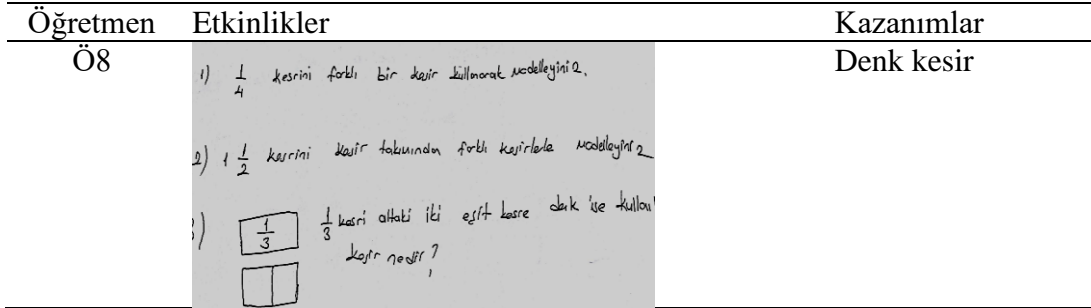 Öğretmen Etkinlikler Kazanımlar
Ö8 Denk kesir
1) 1/4 kesrini farklı bir kesir kullanarak modelleyiniz.
2) 1 1/2 kesrini kesir takımından farklı kesirlerle modelleyiniz
3) 1/3 1/3 kesri alttaki iki eşit kesre denk ise kullan
kesir nedir?